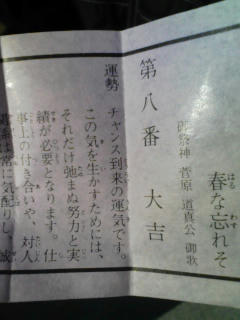 春な忘れそ
はる わす
御祭神 菅原 道真公 御歌
第八番 大吉
運勢 チャンス到来の運気です。
この気を生かすためには、
それだけ弛まぬ努力と実
績が必要となります。仕
事上の付き合いや、対人
関係は常に気配りし、誠